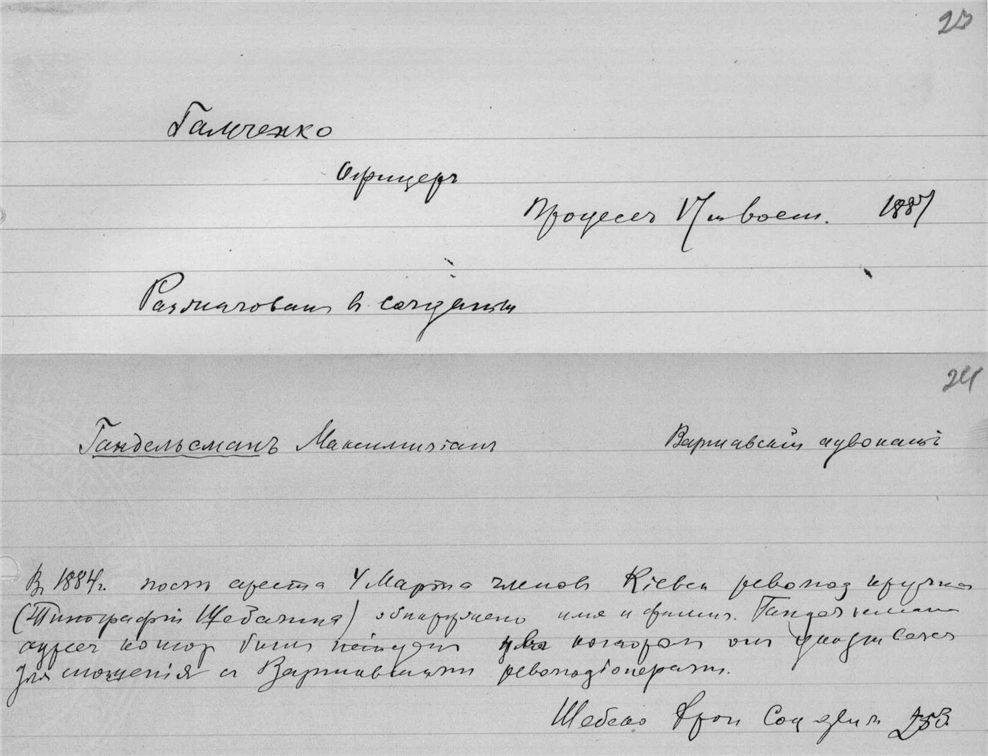 23
Гамченко
Офицеръ
Процессъ 17 1887
Разжалованъ в солдаты
24
Гандельсманъ Максимиліанъ Варшавскій адвокатъ
Въ 1884г. послѣ ареста 4 Марта членовъ Кіевск револ кружка
(Типографія Щебалина) обнаружено имя и фамил. Гандельсмана
адресъ котор былъ которой они
для сношенія съ Варшавскими революціонерами.
Шебеко Хрон Соц движ 253.